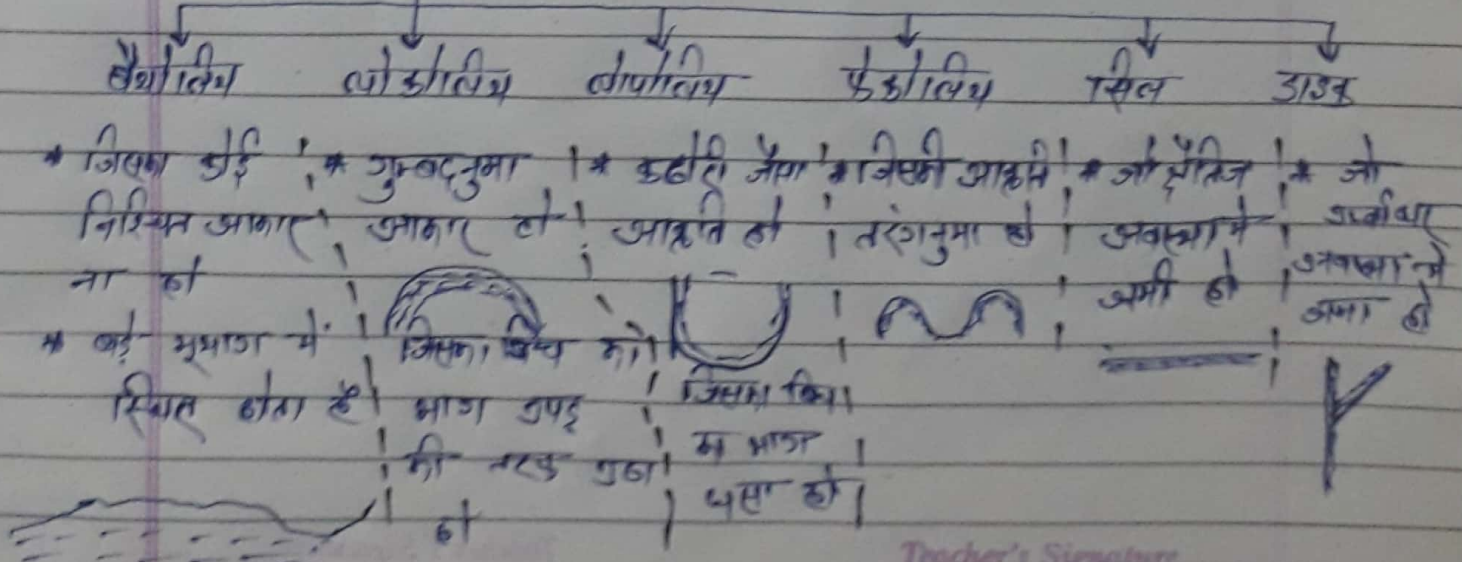 बैथोलिथ लोकोलिथ लोपोलिथ फैकोलिथ सिल डाइक
* जिसका कोई
निश्चित आकार
ना हो
* बड़े भूभाग में
स्थित होता है
* गुम्बदनुमा
आकार हो
जिसका बिच का
भाग उपर
की तरफ उठा
हो
* कटोरी जैसा
आकृति हो
जिसका
भाग
धसा हो
* जिसकी आकृति
तरंगनुमा हो
* जो क्षैतिज
अवस्था में
जमी हो
* जो
उर्ध्वाधर
अवस्था में
जमा हो
Teacher's Signature